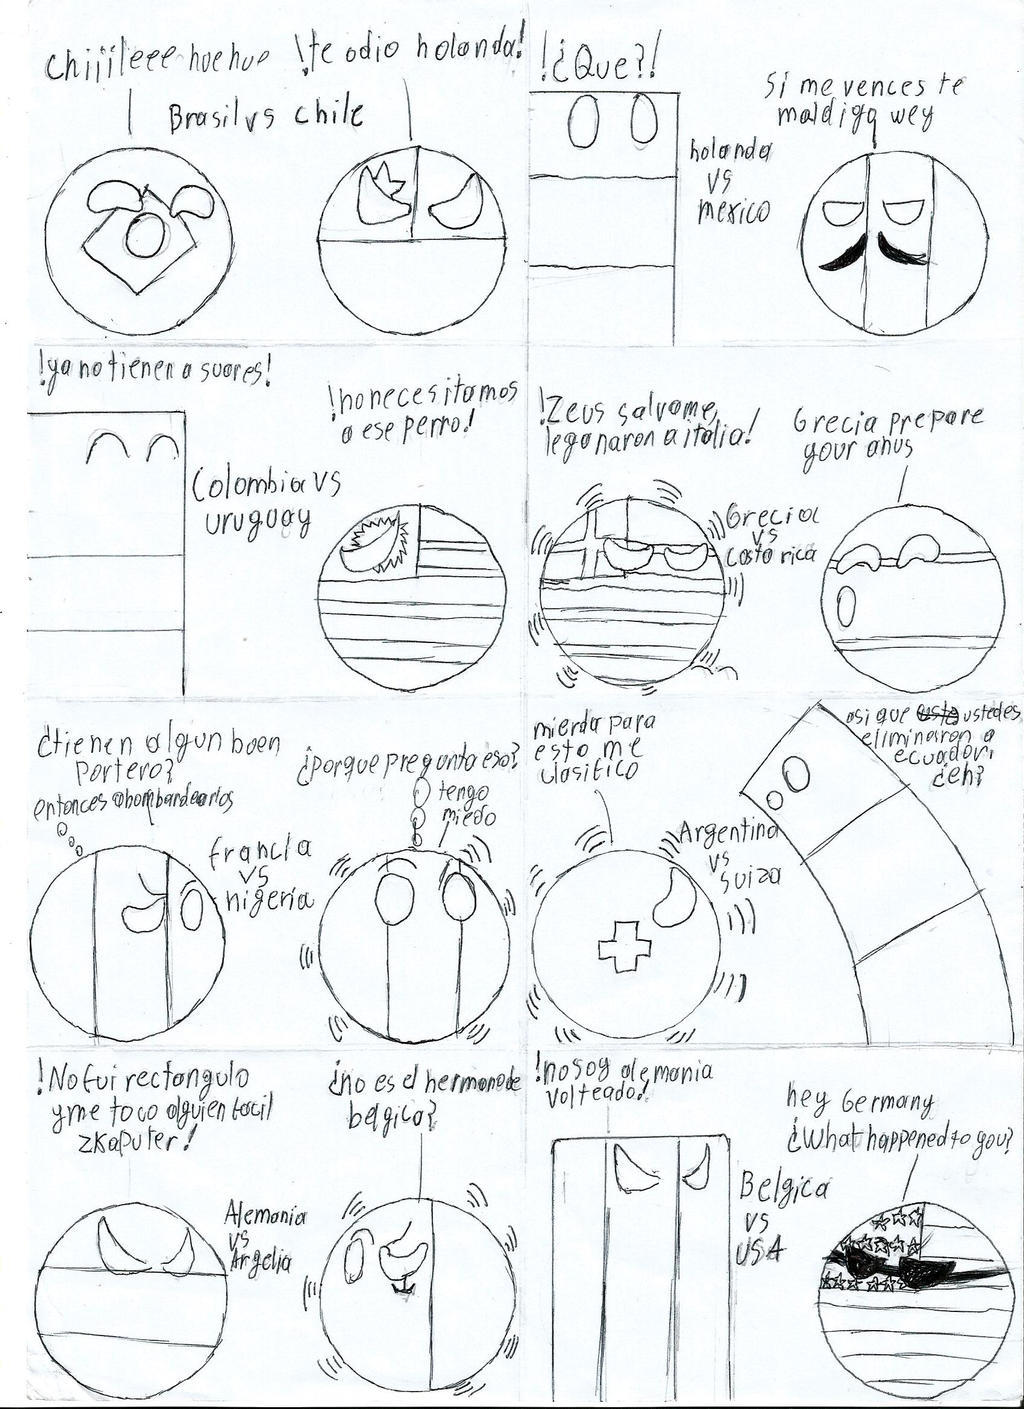 Chiiileee huehue
!te odio holanda!
Brasil vs chile
!¿Que?!
Si me vences te
maldigo wey
holanda
vs
mexico
!ya no tienen a suares!
!no necesitamos
a ese perro!
Colombia vs
uruguay
!Zeus salvame,
le ganaron a italia!
Grecia prepare
your anus
Grecia
vs
Costa rica
¿tienen algun buen
portero?
entonces a bombardearlos
¿porque pregunta eso?
tengo
miedo
francia
vs
nigeria
mierda para
esto me
clasifico
asi que esta ustedes
eliminaron a
ecuador
¿eh?
Argentina
vs
suiza
!No fui rectangulo
y me toco alguien facil
zkaputer!
¿no es el hermano de
belgica?
Alemania
vs
Argelia
!no soy alemania
volteado!
hey Germany
¿What happened to you?
Belgica
vs
USA